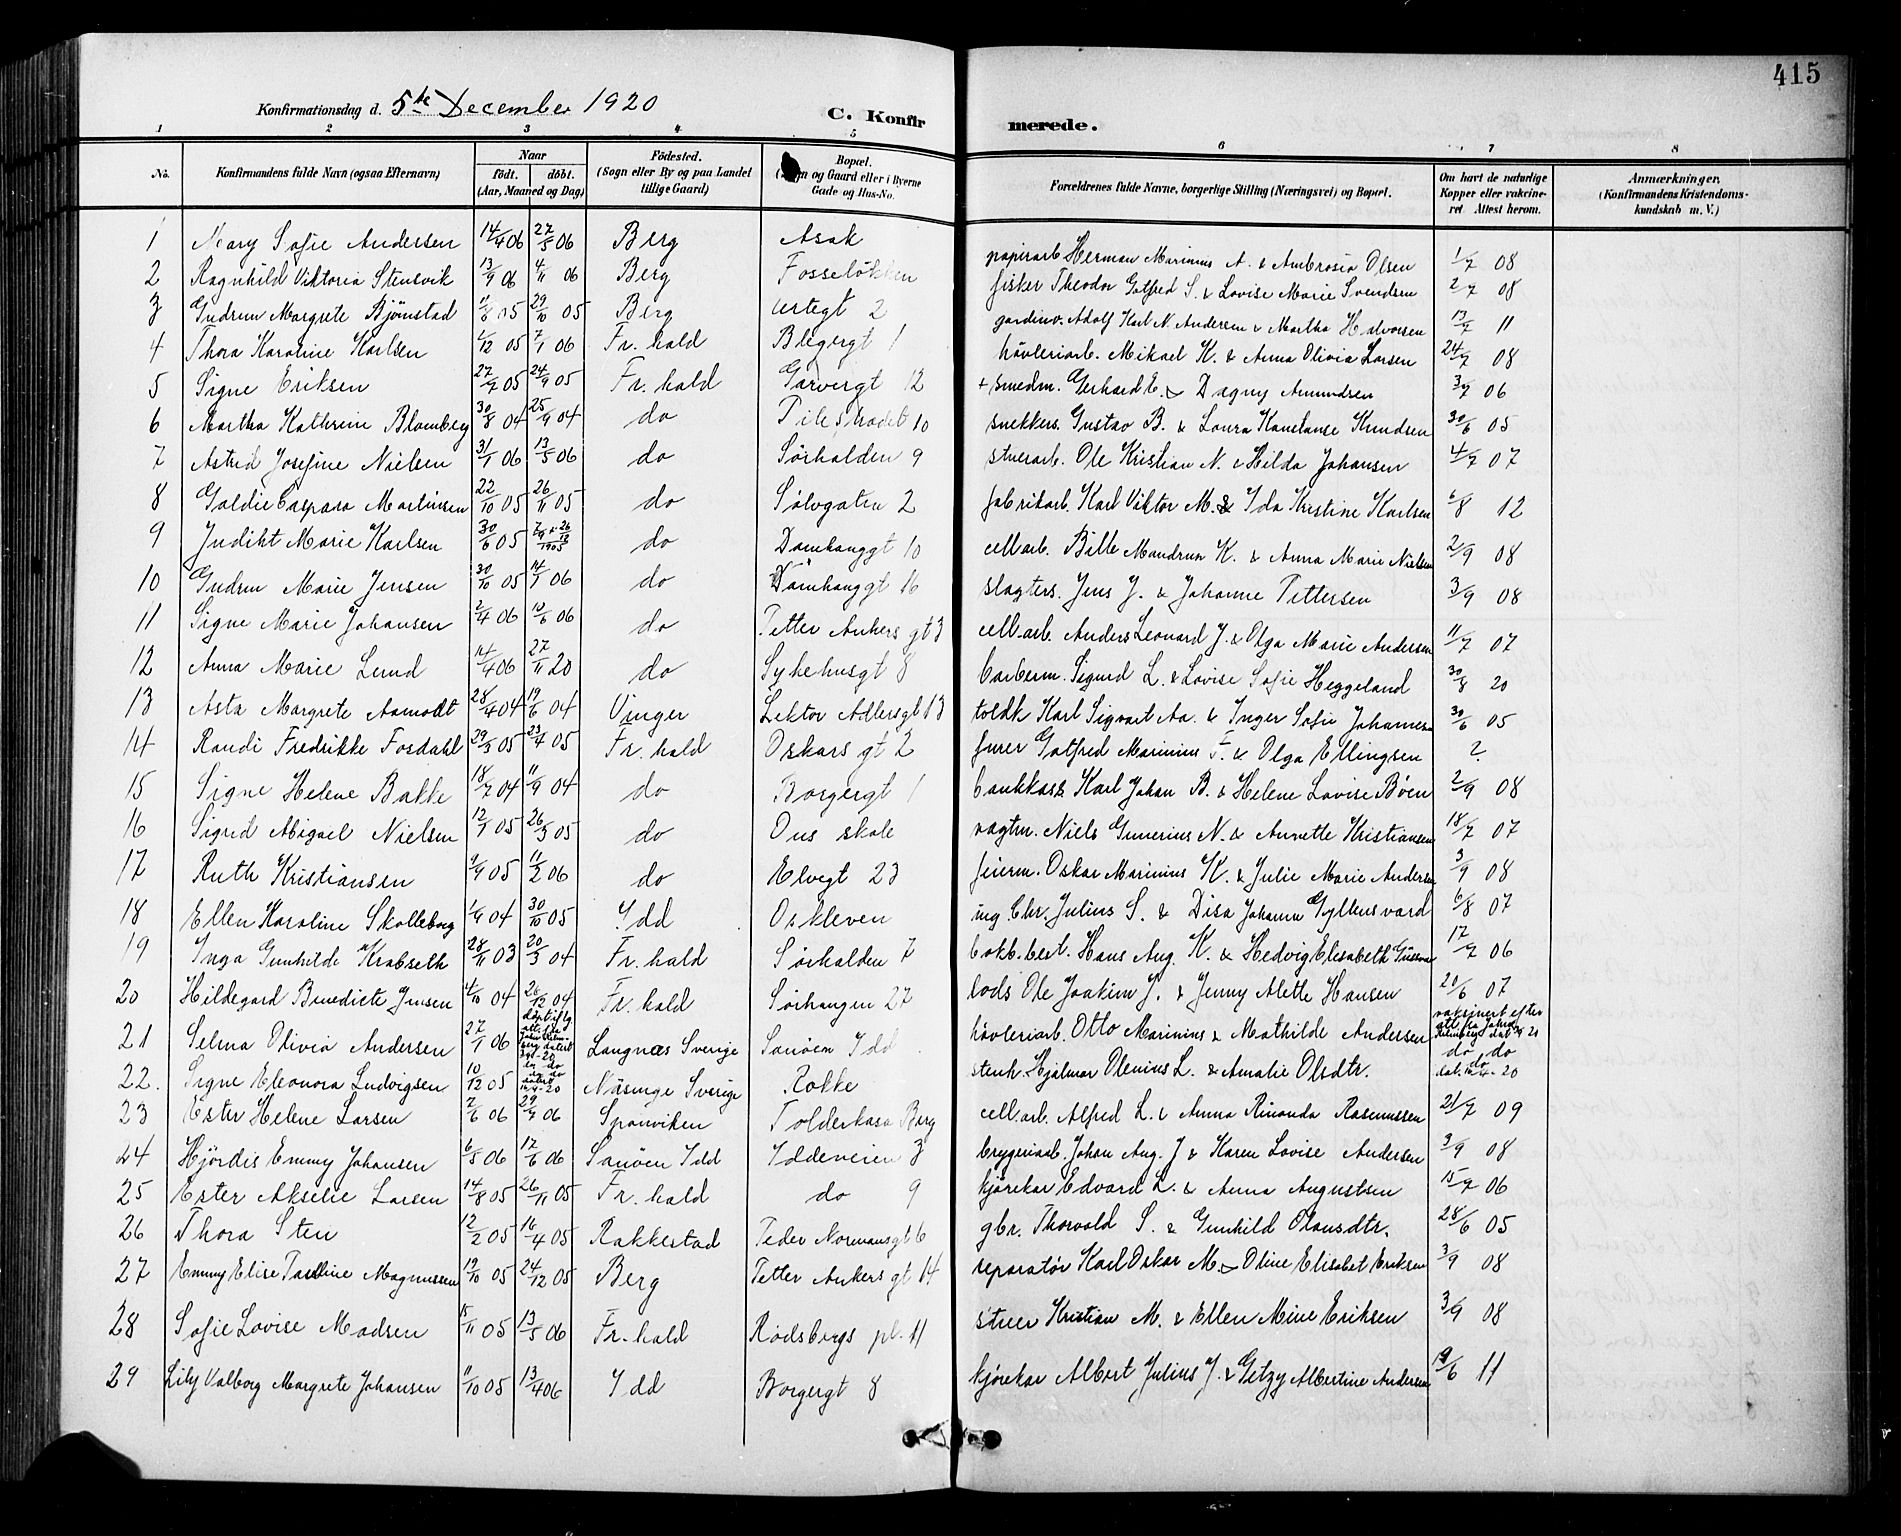 415
Konfirmationsdag d. 5te December 1920
C. Konfirmerede.
1 2 3 4 5 6 7 8
No. | Konfirmandens fulde Navn (ogsaa Efternavn) | Naar født. døbt. (Aar, Maaned og Dag) | Fødested. (Sogn eller By og paa Landet tillige Gaard) | Bopæl. (Sogn og Gaard eller i Byerne Gade og Hus-No. | Forældrenes fulde Navne, borgerlige Stilling (Næringsvei) og Bopæl. | Om havt de naturlige Kopper eller vakcineret Attest herom. | Anmærkninger. (Konfirmandens Kristendomskundskab m. V.)
1 Mary Sofie Andersen 14/4 06 27/5 06 Berg Asak papirarb. Herman Marinius A. & Ambrosia Olsen 1/7 08
2 Ragnhild Viktoria Stensvik 13/9 06 4/11 06 Berg Fosseløkken fisker Theodor Gotfred S. & Lovise Marie Svendsen 2/7 08
3 Gudrun Margrete Bjørnstad 05 29/10 05 Berg 2 Adolf Karl N. Andersen & Martha Halvorsen 13/7 11
4 Thora Karoline Karlsen 1/12 05 7/1 06 Fr.hald Blegergt 1 høvleriarb. Mikael K. & Anna Olivia Larsen 24/7 08
5 Signe Eriksen 27/7 05 24/9 05 Fr.hald Garvergt 12 + smedm. Gerhard E. & Dagny Amundsen 3/7 06
6 Martha Kathrine Blomberg 30/8 04 25/9 04 do Pilestrædet 10 snekkers. Gustav B. & Laura Konstanse Knudsen 30/6 05
7 Astrid Josefine Nielsen 31/1 06 13/5 06 do Sørhalden 9 stuerarb. Ole Kristian N. & Hilda Johansen 4/7 07
8 Goldie Caspara Martinsen 22/10 05 26/11 05 do Sølvgaten 2 fabrikarb. Karl Viktor M. & Ida Kristine Karlsen 6/8 12
9 Judiht Marie Karlsen 30/6 05 1905 do Damhauggt 10 cell.arb. Bille Mandrup K. & Anna Marie Nielsen 2/9 08
10 Gudrun Marie Jensen 30/10 05 14/1 06 do Damhauggt 16 slagters. Jens J. & Johanne Pettersen 3/9 08
11 Signe Marie Johansen 2/4 06 10/6 06 do Petter Ankers gt 3 cell.arb. Anders Leonard J. & Olga Marie Andersen 11/7 07
12 Anna Marie Lund 14/4 06 27/11 20 do Sykehusgt 8 barberm. Sigurd L. & Lovise Sofie Heggeland 30/8 20
13 Asta Margrete Aamodt 28/4 04 19/6 04 Vinger Lektor Adlersgt 13 toldk Karl Sigvart Aa. & Inger Sofie Johannes 30/6 05
14 Randi Fredrikke Fosdahl 29/3 05 23/4 05 Fr.hald Oskars gt 2 furer Gotfred Marinius F. & Olga Ellingsen ?
15 Signe Helene Bakke 18/7 04 11/9 04 do Borgergt 1 bankkass Karl Johan B. & Helene Lovise Bøen 2/9 08
16 Sigrid Abigael Nielsen 12/1 05 26/3 05 do Ous skole vagtm. Niels Gunerius N. & Annette Kristiansen 18/7 07
17 Ruth Kristiansen 9/9 05 11/2 06 do Elvegt 23 feierm. Oskar Marinius K. & Julie Marie Andersen 3/9 08
18 Ellen Karoline Skolleborg 1/9 04 30/10 05 Idd Oskleven ing. Chr. Julius S. & Disa Johanne Gyllensvard 6/8 07
19 Inga Gunhilde Krabseth 28/11 03 20/3 04 Fr.hald Sørhalden 7 bokb.best. Hans Aug. K. & Hedvig Elisabeth 17/7 06
20 Hildegard Benedicte Jensen 4/10 04 26/12 04 Fr.hald Sørhaugen 27 lods Ole Joakim J. & Jenny Alette Hansen 20/6 07
21 Selma Olivia Andersen 27/1 06 Langnæs Sverige Sanøen Idd høvleriarb. Otto Marinius & Mathilde Andersen vaksinert efter
22. Signe Eleonora Ludvigsen 10/12 05 Näsinge Sverige Rokke stenh. Hjalmar Olenius L. & Amalie Olsdtr. do do
23 Ester Helene Larsen 7/6 06 29/9 06 Sponviken Tolderkasa Berg cell.arb. Alfred L. & Anna Rinanda Rasmussen 21/7 09
24 Hjørdis Emmy Johansen 6/5 06 17/6 06 Sanøen Idd Iddeveien 3 bryggeriarb. Johan Aug. J & Karen Lovise Andersen 3/9 08
25 Ester Akselie Larsen 14/8 05 26/11 05 Fr.hald do 9 kjørekar Edvard L. & Anna Augustsen 15/7 06
26 Thora Sten 12/2 05 16/4 05 Rakkestad Peder Normansgt 6 gbr. Thorvald S. & Gunhild Olausdtr. 28/6 05
27 Emmy Elise Magnussen 19/10 05 24/12 05 Berg Petter Ankers gt 14 reparatør Karl Oskar M. & Oline Elisabet Eriksen 3/9 08
28 Sofie Lovise Madsen 15/11 05 13/5 06 Fr.hald Rødsbergs pl. 11 stuer Kristian M. & Ellen Mine Eriksen 3/9 08
29 Lily Valborg Margrete Johansen 11/10 05 13/4 06 Idd Borgergt 8 kjørekar Albert Julius J. & Getzy Albertine Andersen 11